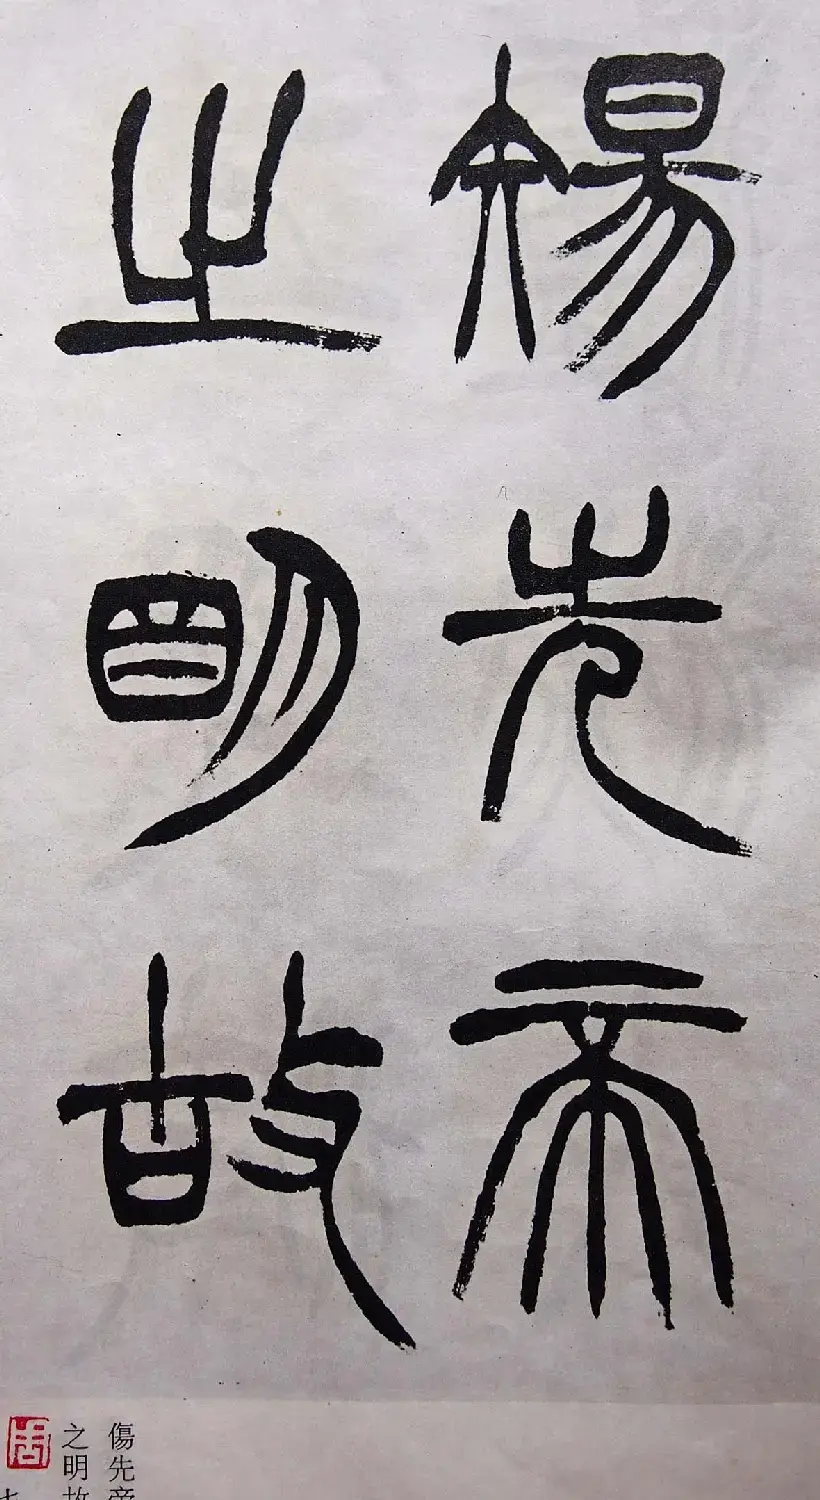 傷先帝
之明故
傷先帝
之明故